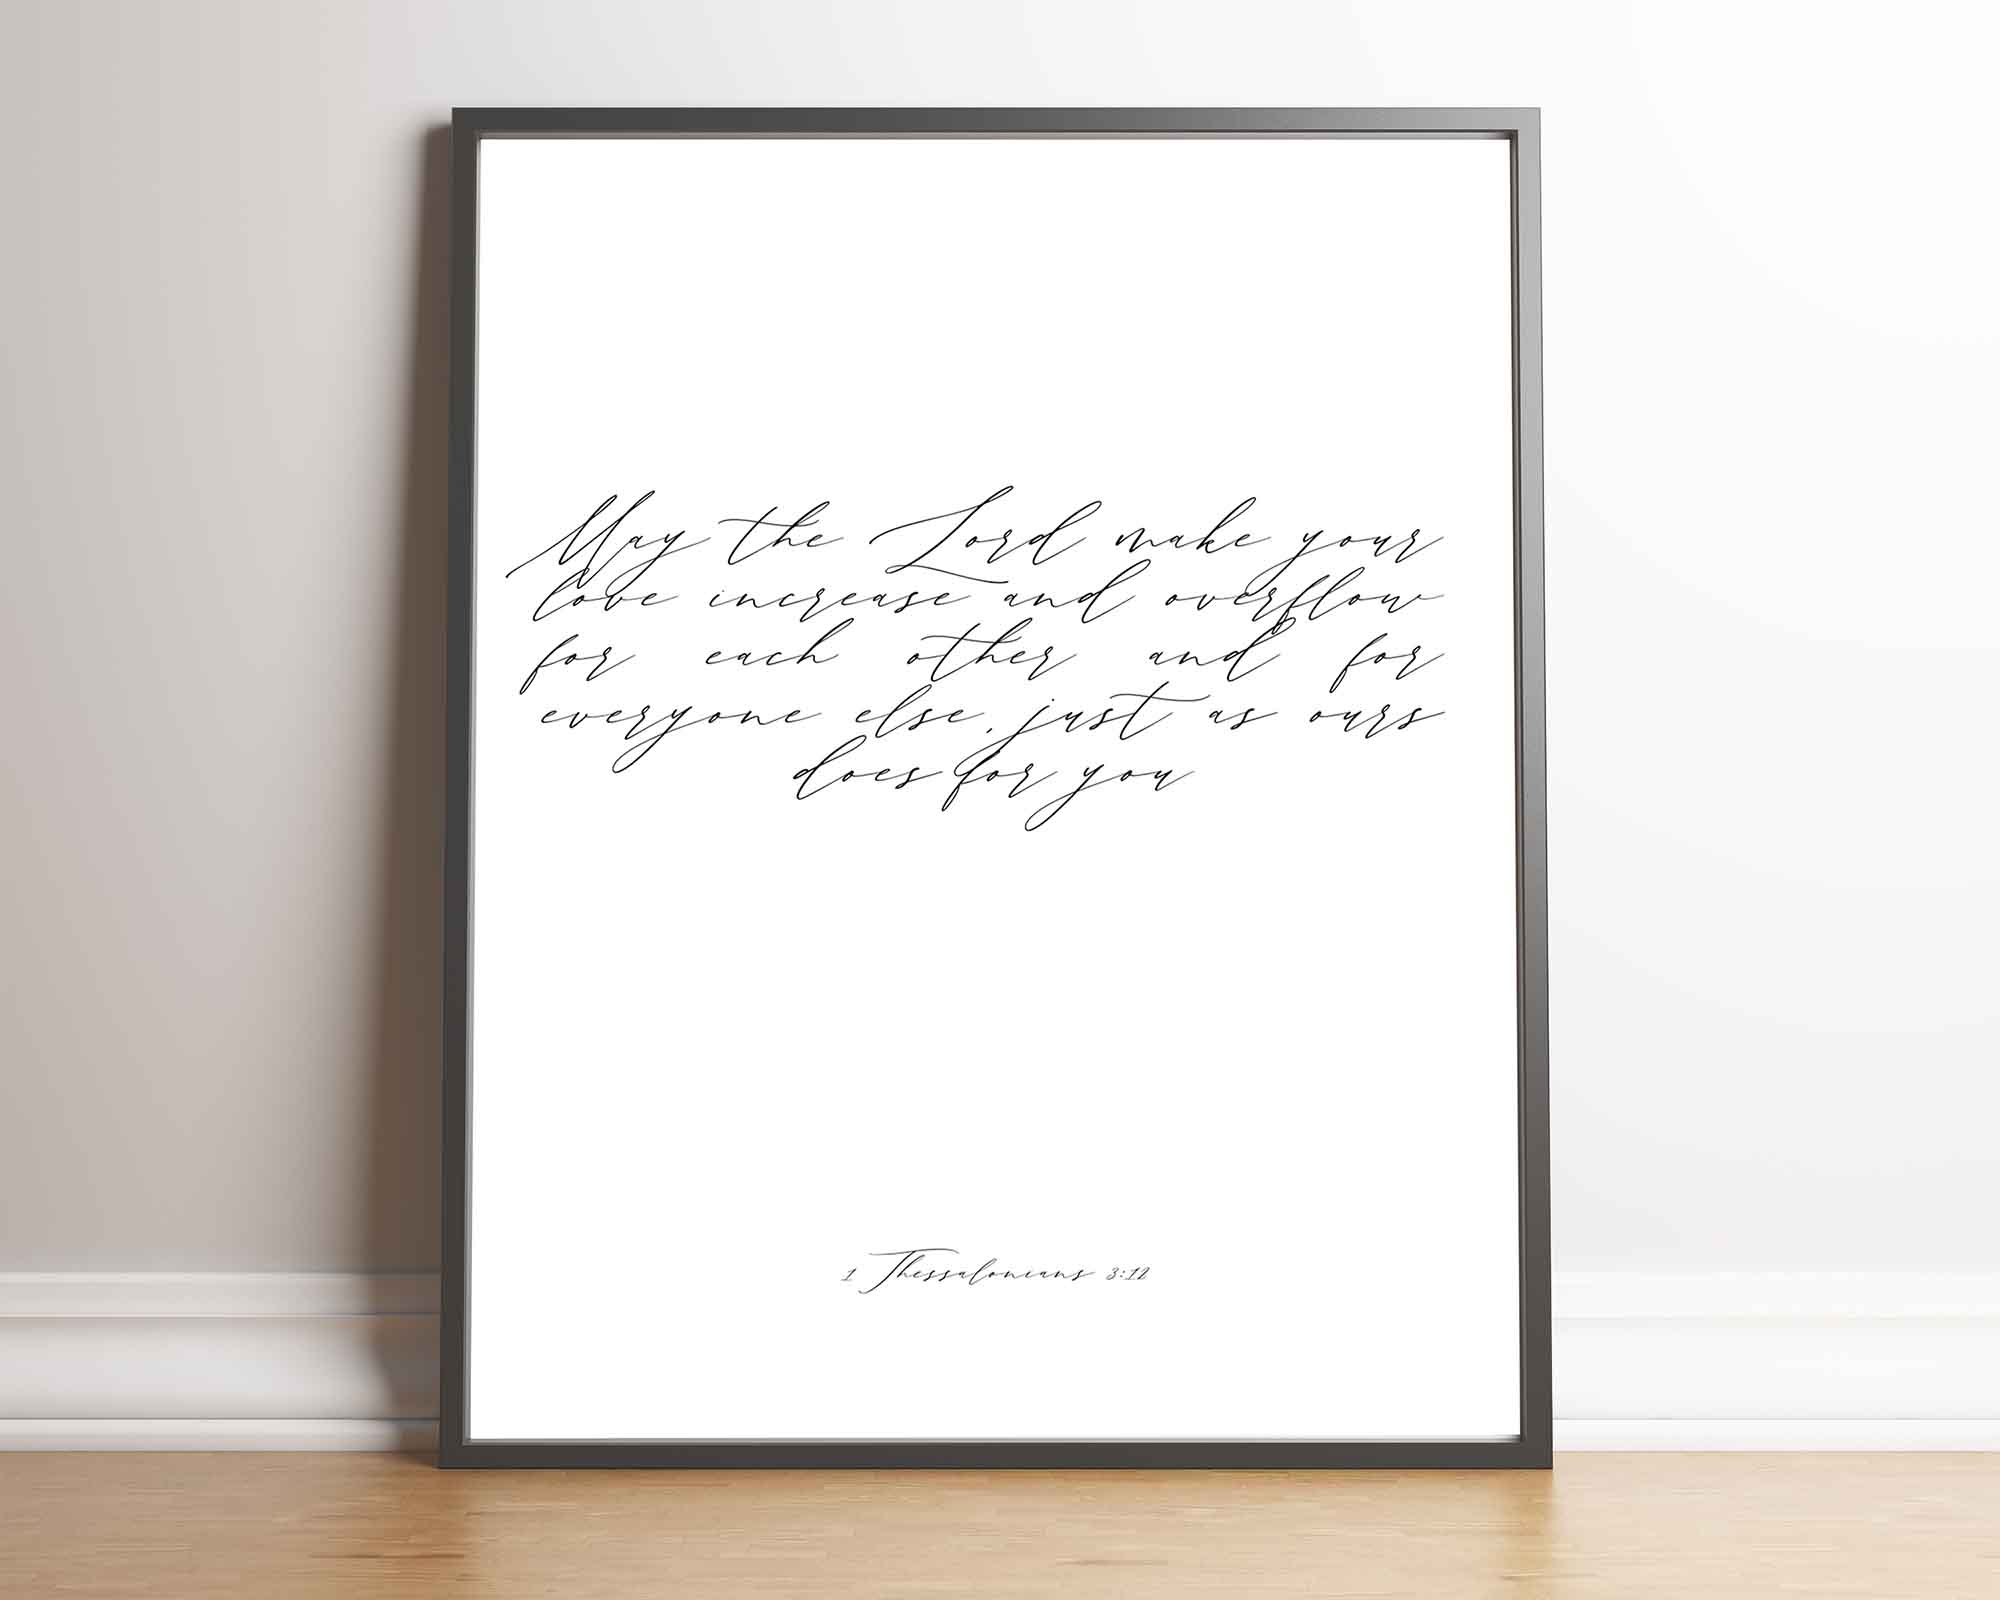 May the Lord make your
love increase and overflow
for each other and for
everyone else, just as ours
does for you
1 Thessalonians 3:12